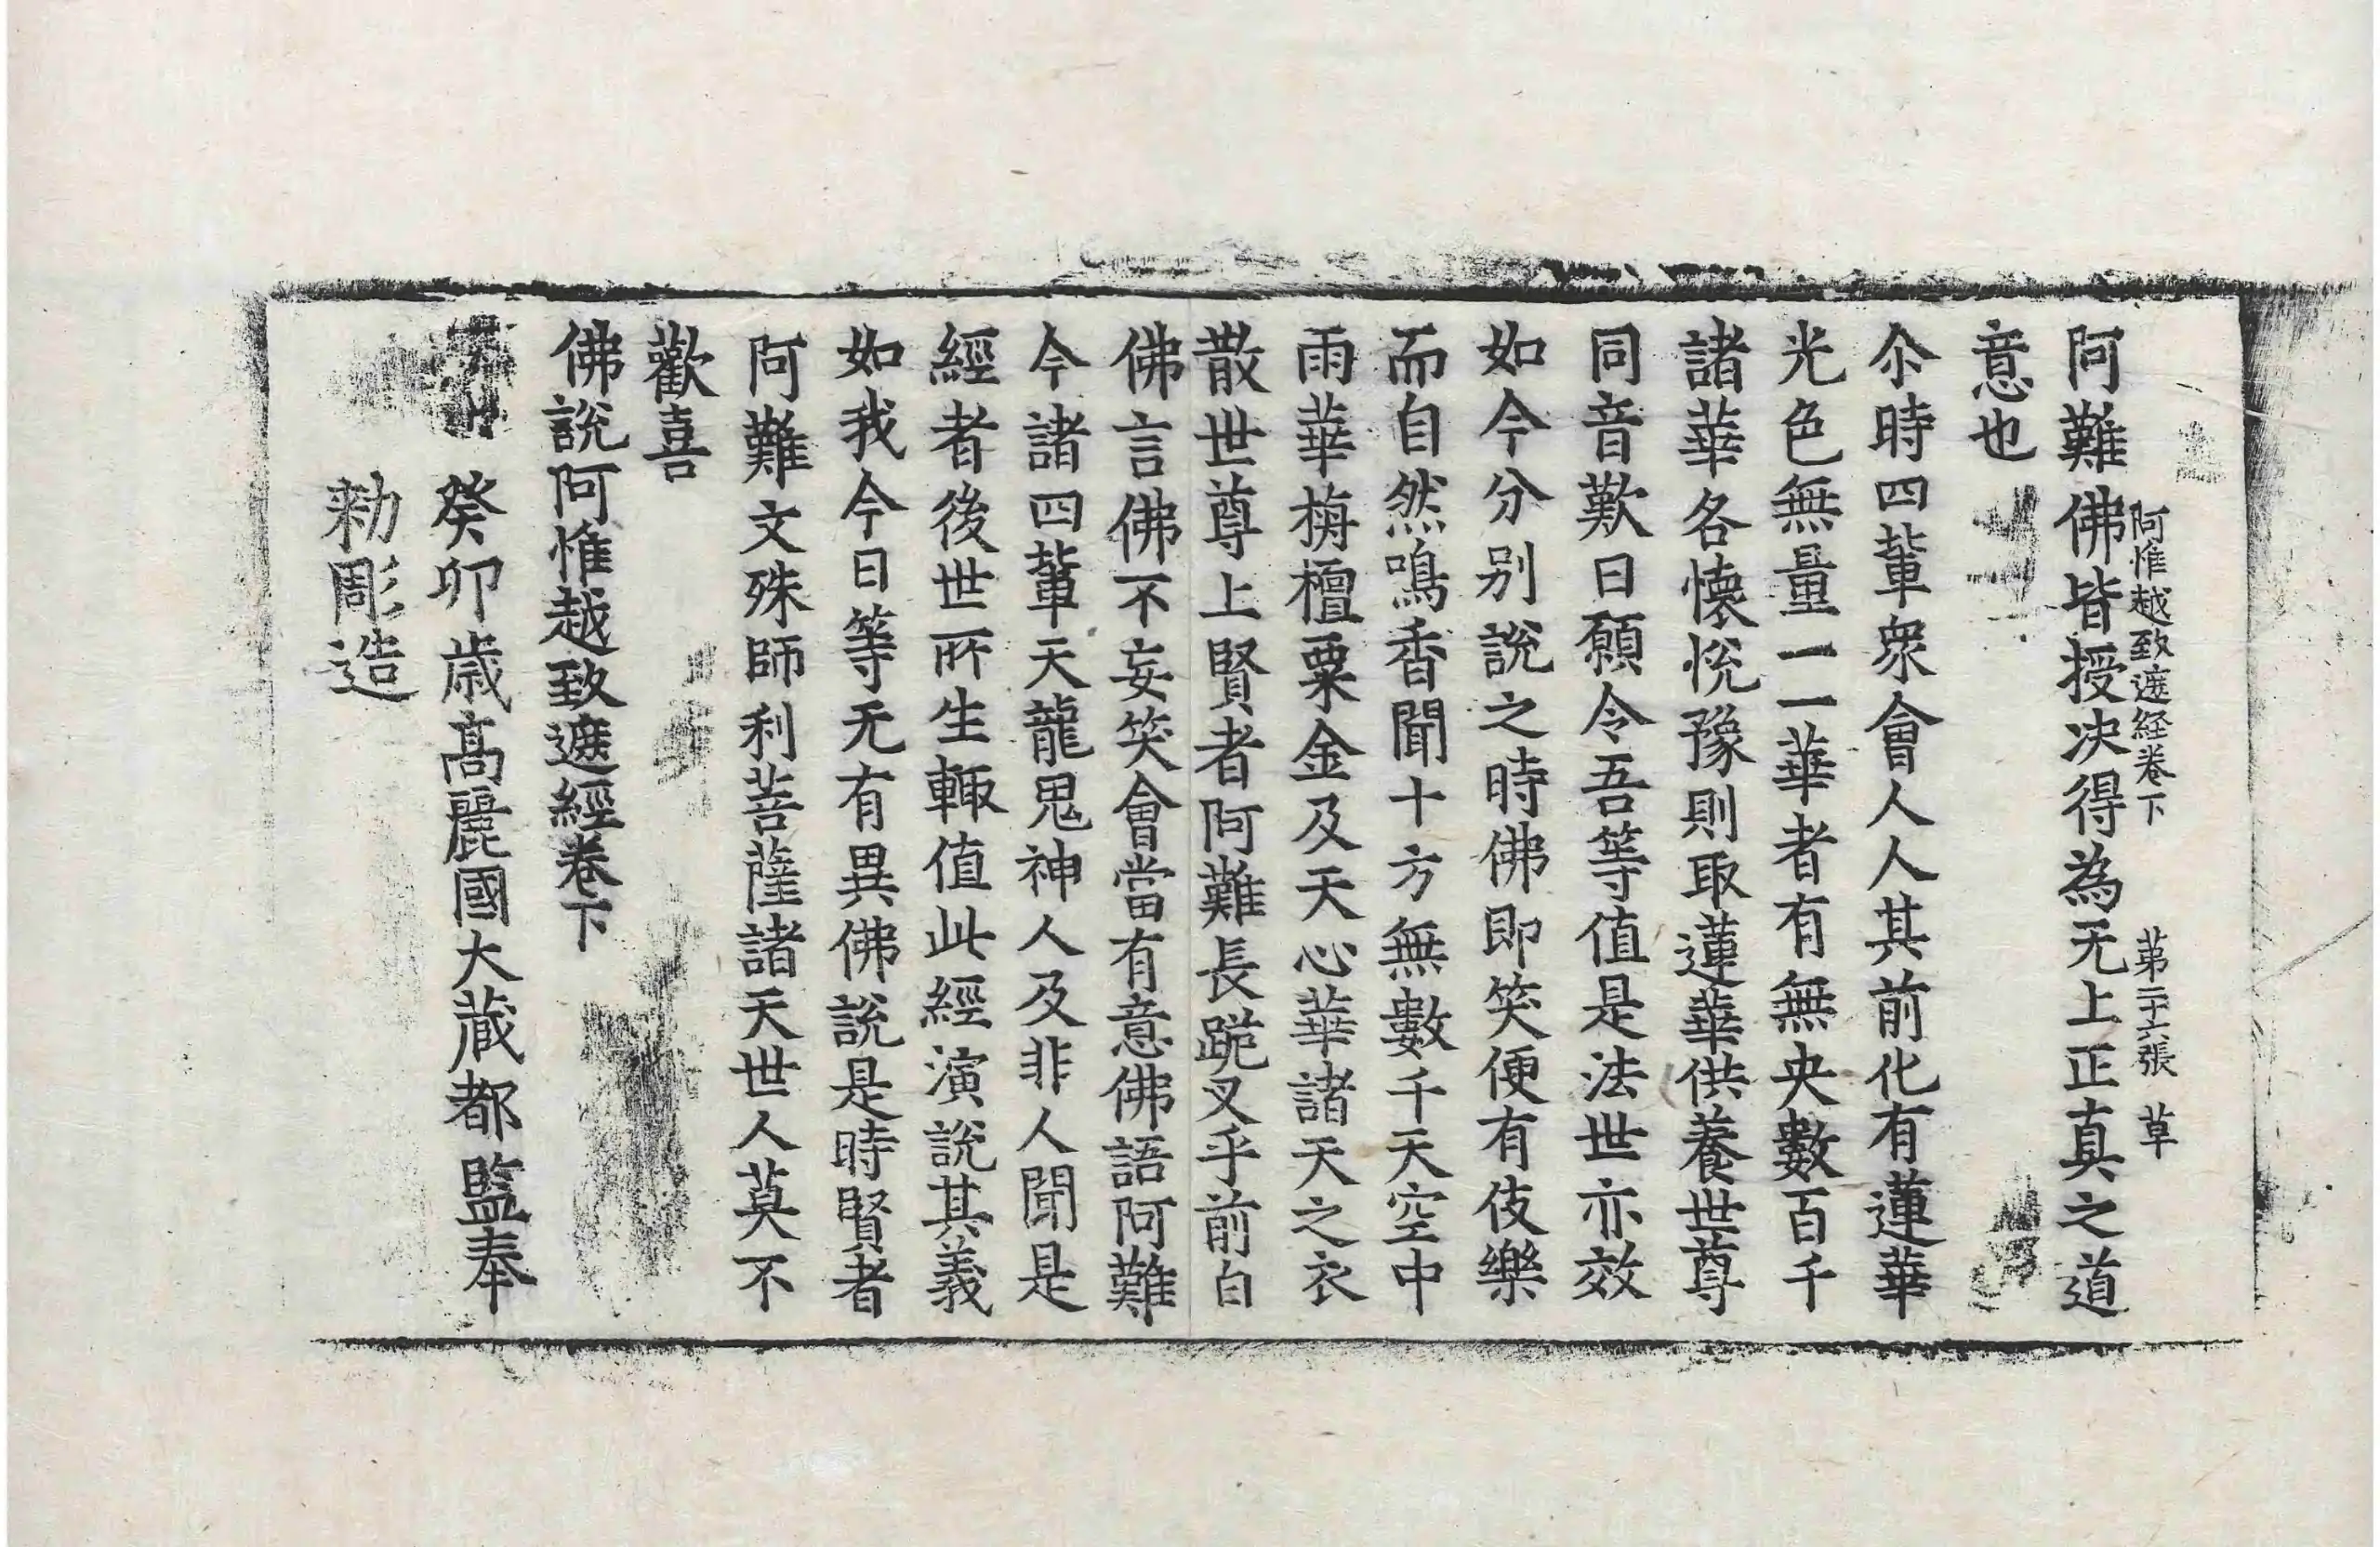 阿難佛皆授决得為无上正真之道
阿惟越致遮経卷下 第二十六張 草
意也
尒時四輩衆會人人其前化有蓮華
光色無量一一華者有無央數百千
諸華各懐恱豫則取蓮華供養世尊
同音歎曰願令吾等值是法世亦效
如今分别說之時佛即笑便有伎樂
而自然鳴香聞十方無數千天空中
雨華栴檀粟金及天心華諸天之衣
散世尊上賢者阿難長跪叉乎前白
佛言佛不妄笑會當有意佛語阿難
今諸四輩天龍鬼神人及非人聞是
經者後世所生輙值此經演說其義
如我今日等无有異佛說是時賢者
阿難文殊師利菩薩諸天世人莫不
歡喜
佛說阿惟越致遮經卷下
癸卯歳髙麗國大蔵都監奉
勑彫造